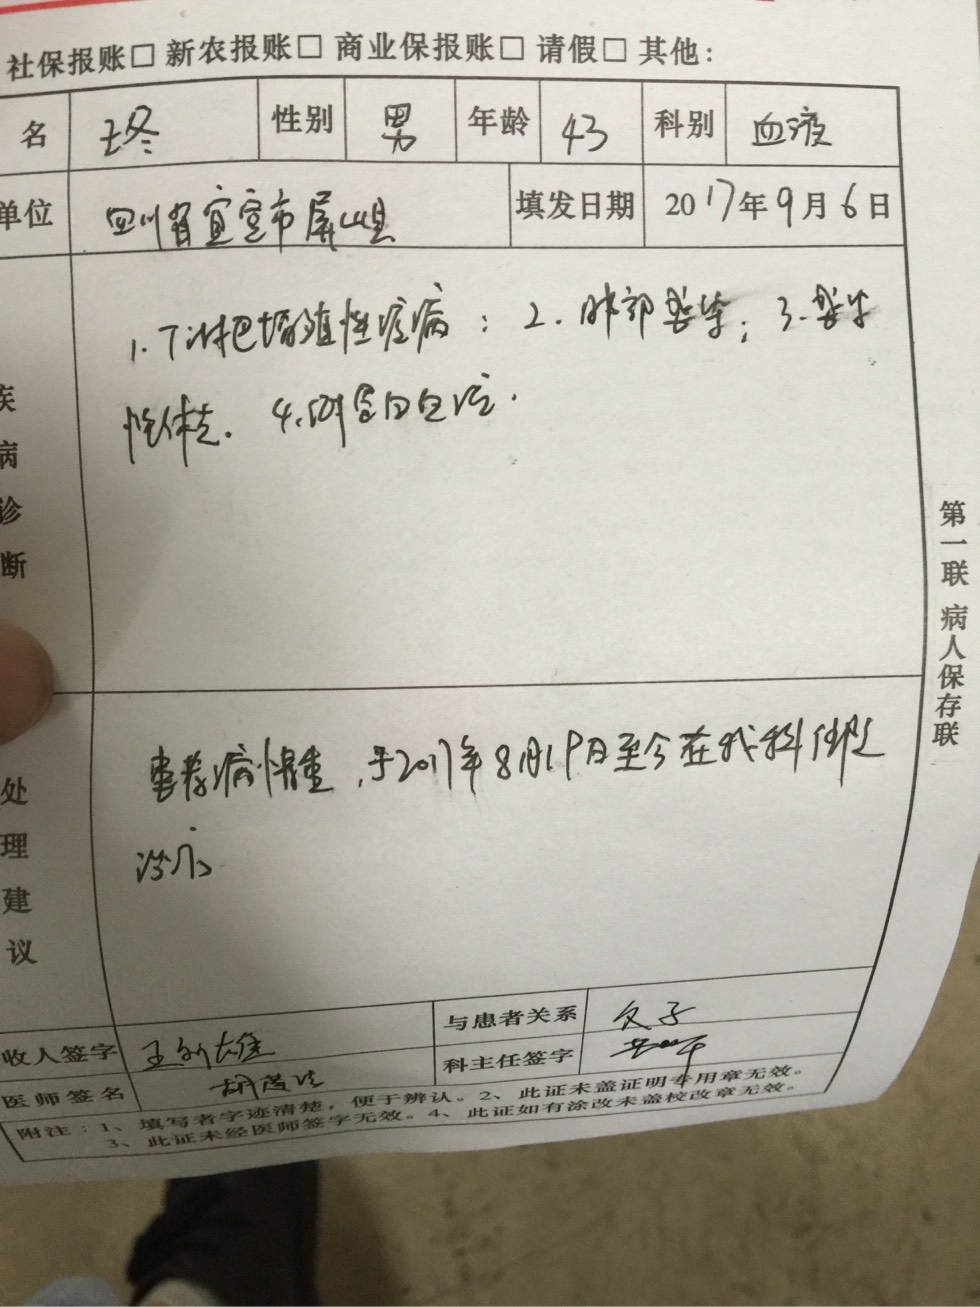 社保报账□ 新农报账□ 商业保报账□ 请假□ 其他：
名 性别 男 年龄 43 科别 血液
单位 四川省宜宾市屏山县 填发日期 2017年9月6日
疾病诊断
1. T淋巴增殖性疾病；2. 肺部感染；3. 感染
性休克. 4. 低蛋白血症.
处理建议
患者病情重，于2017年8月19日至今在我科住院
治疗
收人签字 与患者关系 父子
科主任签字
医师签名
附注：1、填写者字迹清楚，便于辨认。2、此证未盖证明专用章无效。
3、此证未经医师签字无效。4、此证如有涂改未盖校改章无效。
第一联 病人保存联